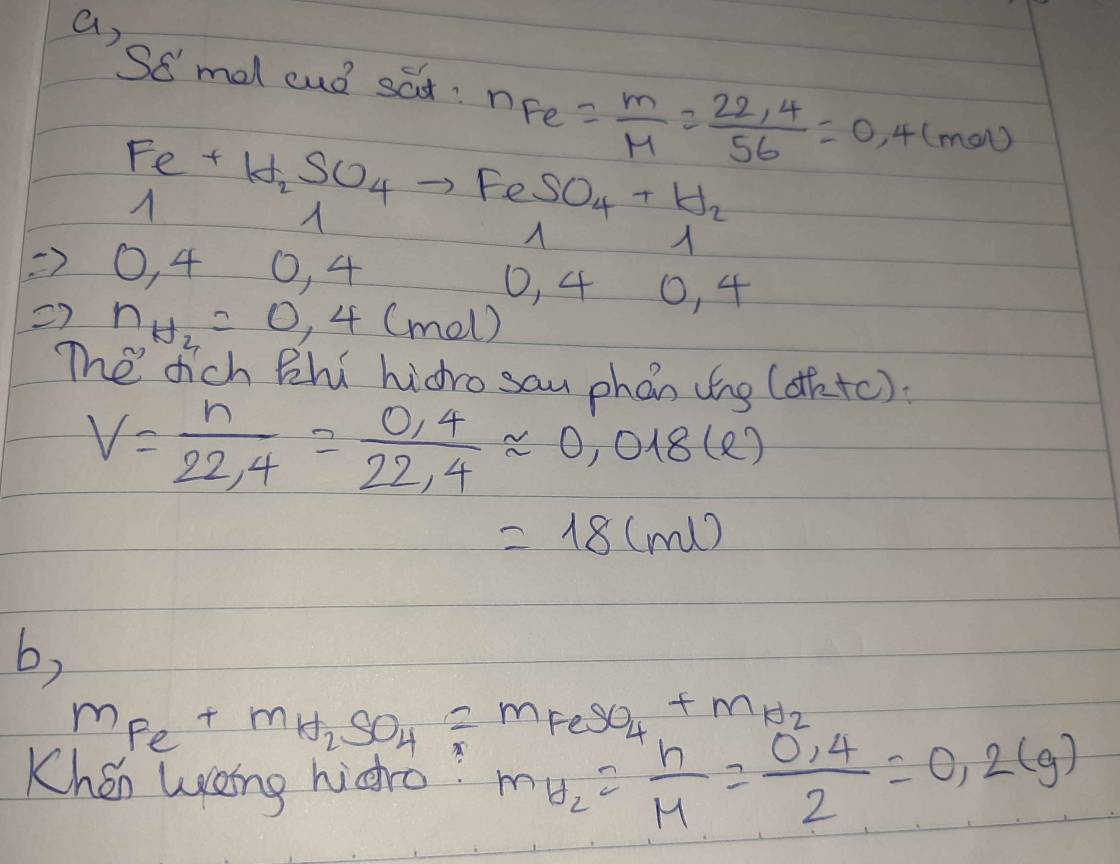 a,
Số mol cuả sắt: nFe = m/M = 22,4/56 = 0,4 (mol)
Fe + H₂SO₄ → FeSO₄ + H₂
1 1 1 1
=> 0,4 0,4 0,4 0,4
=> nH₂ = 0,4 (mol)
Thể tích khí hiđro sau phản ứng (đktc):
V = n/22,4 = 0,4/22,4 ≈ 0,018 (l)
= 18 (ml)
b,
mFe + mH₂SO₄ = mFeSO₄ + mH₂
Khối lượng hiđro: mH₂ = n/M = 0,4/2 = 0,2 (g)